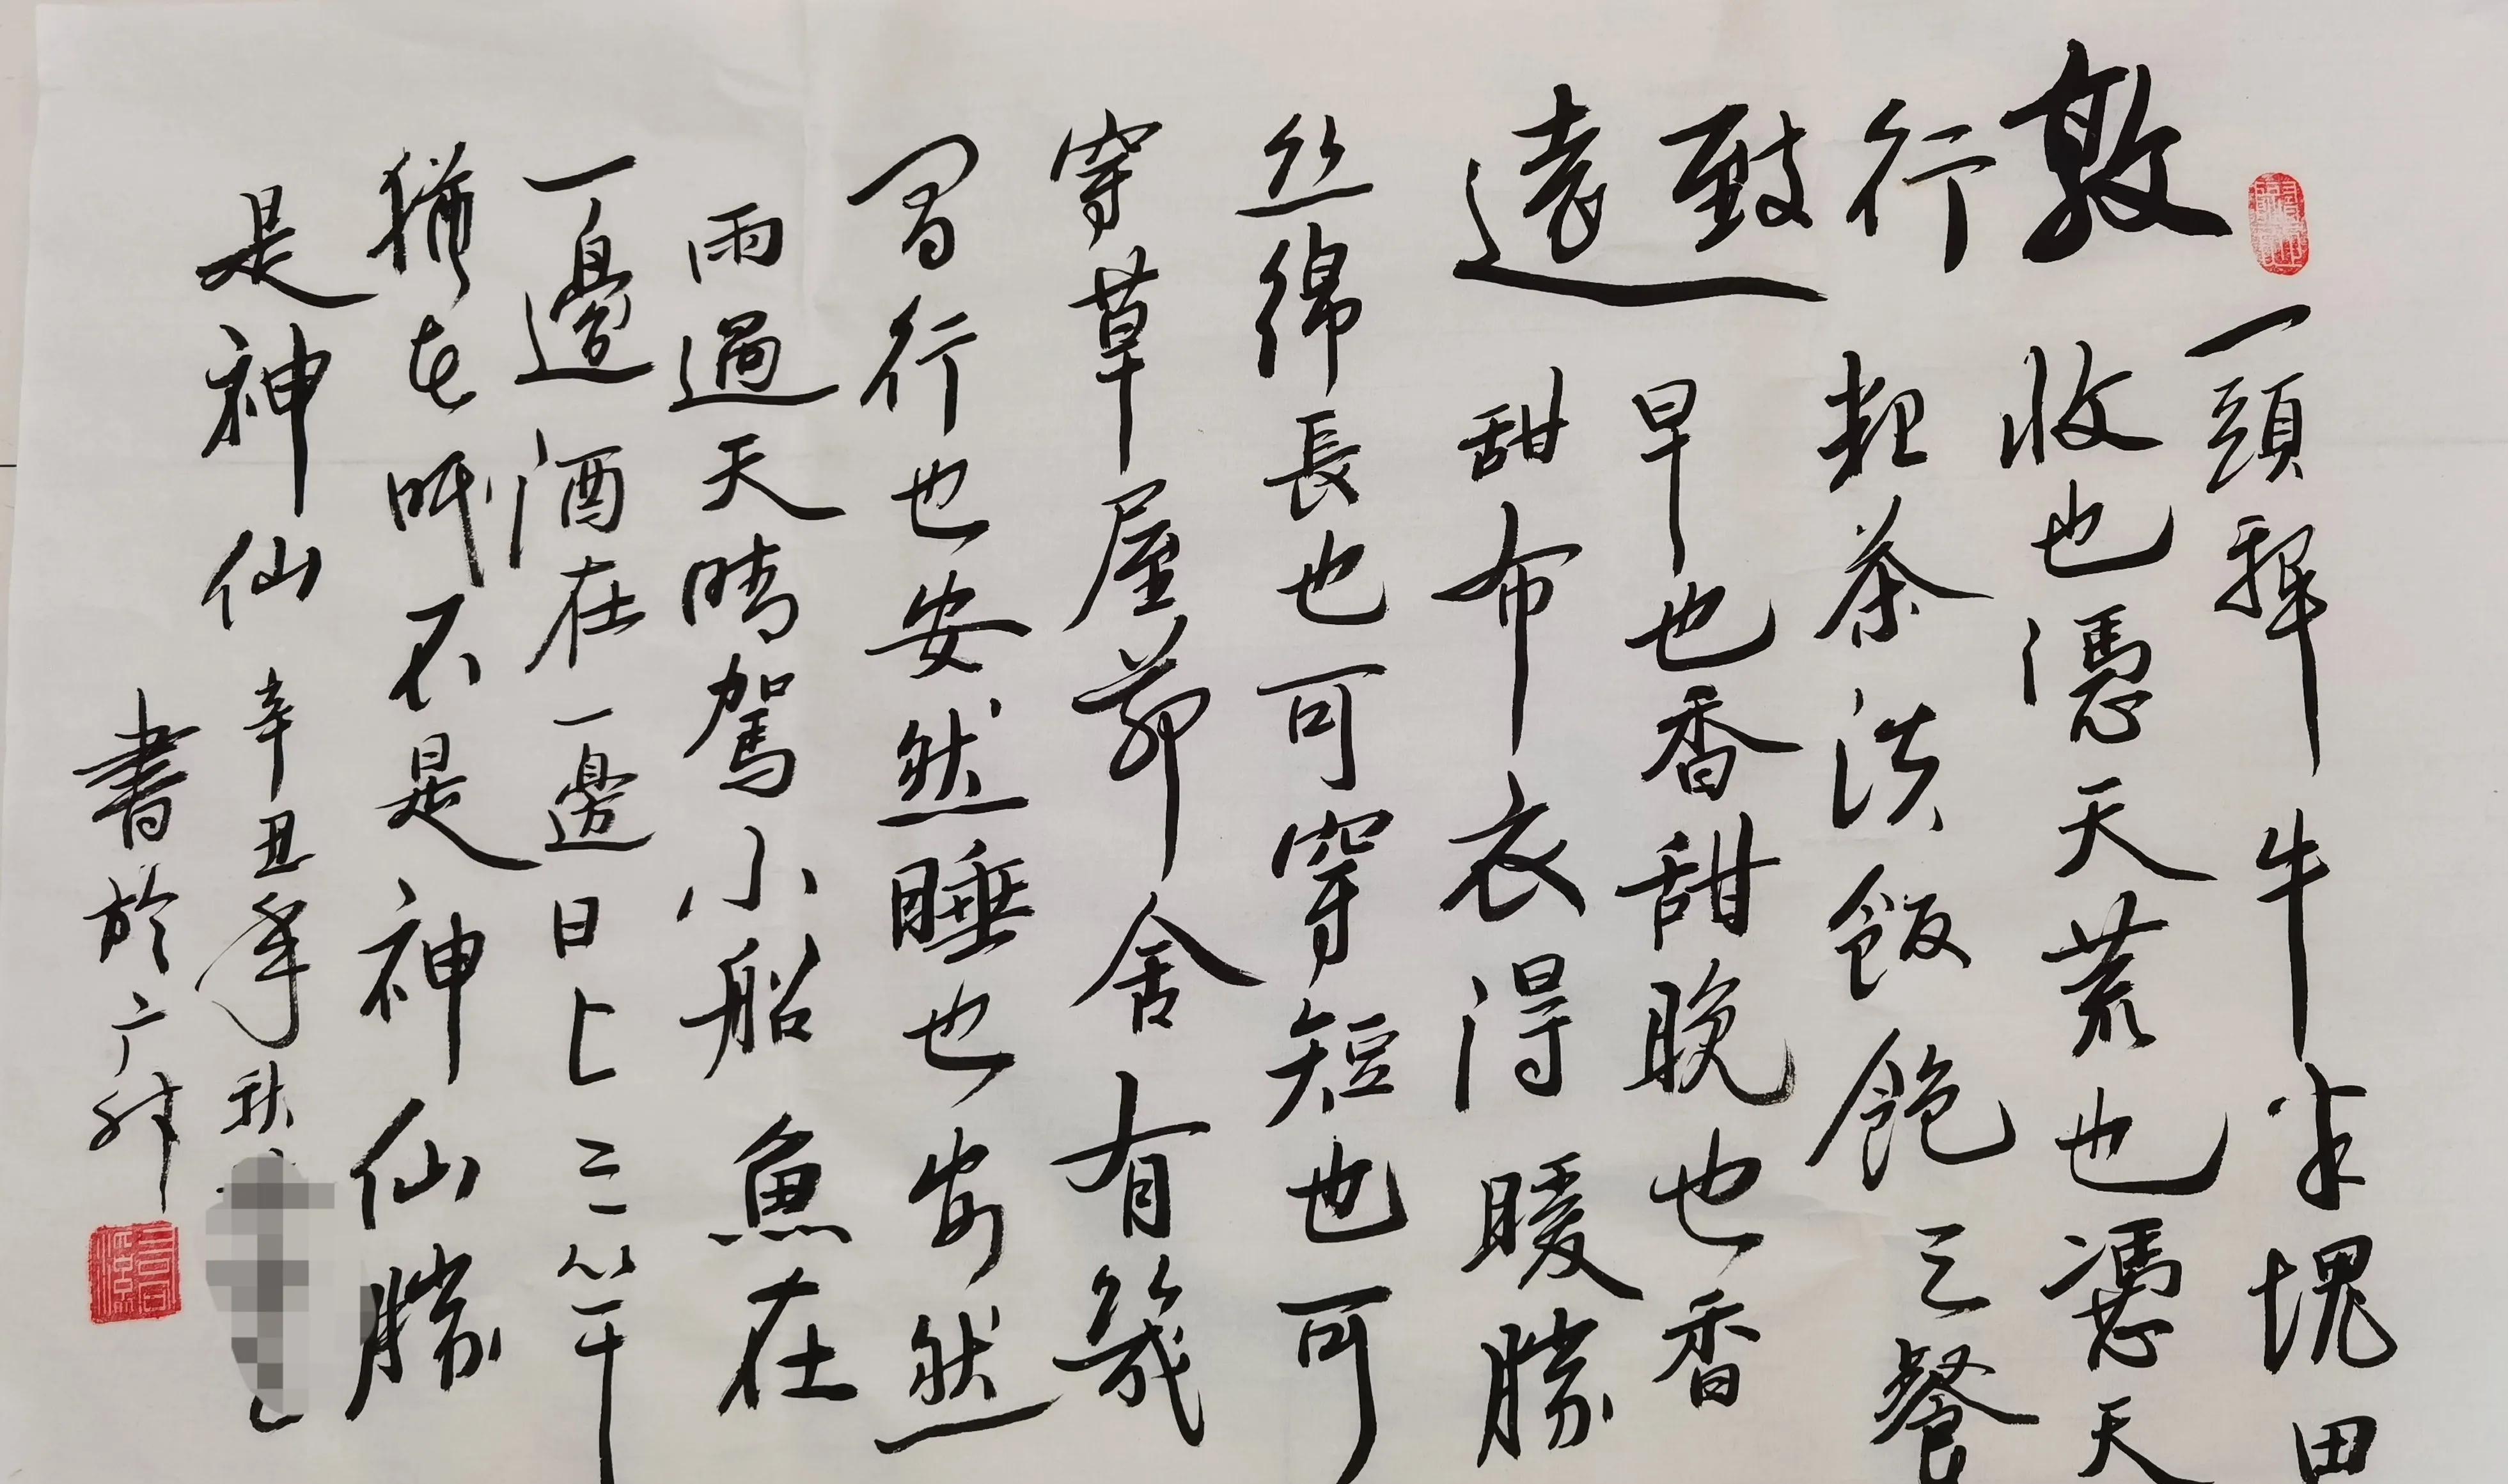 敦行致遠
一頭犁牛半塊田
收也憑天荒也憑天
粗茶淡飯飽三餐
早也香甜晚也香
甜布衣得暖勝
丝綿長也可穿短也可
穿草屋茆舍有幾
間行也安然睡也安然
雨過天晴駕小船魚在
一邊酒在一邊日上三竿
猶在眠不是神仙勝
是神仙 辛丑年秋
書於广州